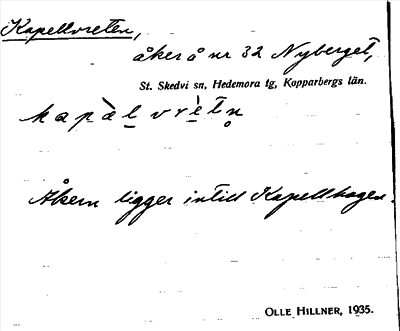 Kapellvreten,
åker å nr 32 Nyberget,
St. Skedvi sn, Hedemora tg, Kopparbergs län.
kapàl vrètn̥
Åkern ligger intill Kapellhagen.
OLLE HILLNER, 1935.